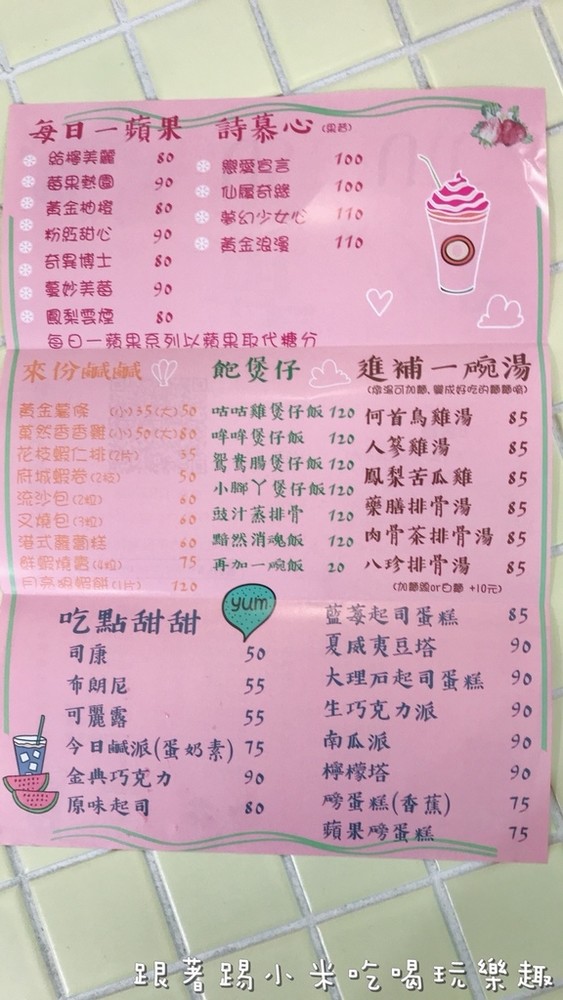 每日一蘋果
給檸美麗 80
莓果熱園 90
黃金柚橙 80
粉紅甜心 90
奇異博士 80
蔓妙美莓 90
鳳梨雲煙 80
每日一蘋果系列以蘋果取代糖分
詩慕心(果昔)
戀愛宣言 100
仙履奇緣 100
夢幻少女心 110
黃金浪漫 110
來份鹹鹹
黃金薯條 (小)35(大)50
菓然香香雞(小)50(大)80
花枝蝦仁排(2片) 35
府城蝦卷(2條) 50
流沙包(2粒) 60
叉燒包(3粒) 60
港式蘿蔔糕 60
鮮蝦燒賣(4粒) 75
月亮蝦餅(1片) 120
飽煲仔
咕咕雞煲仔飯 120
哞哞煲仔飯 120
鴛鴦腸煲仔飯 120
小腳丫煲仔飯 120
豉汁蒸排骨 120
黯然消魂飯 120
再加一碗飯 20
進補一碗湯
何首烏雞湯 85
人蔘雞湯 85
鳳梨苦瓜雞 85
藥膳排骨湯 85
肉骨茶排骨湯 85
八珍排骨湯 85
(加麵線or白麵 +10元)
吃點甜甜
yum
司康 50
布朗尼 55
可麗露 55
今日鹹派(蛋奶素) 75
金典巧克力 90
原味起司 80
藍莓起司蛋糕 85
夏威夷豆塔 90
大理石起司蛋糕 90
生巧克力派 90
南瓜派 90
檸檬塔 90
磅蛋糕(香蕉) 75
蘋果磅蛋糕 75
跟著踢小米吃喝玩樂趣